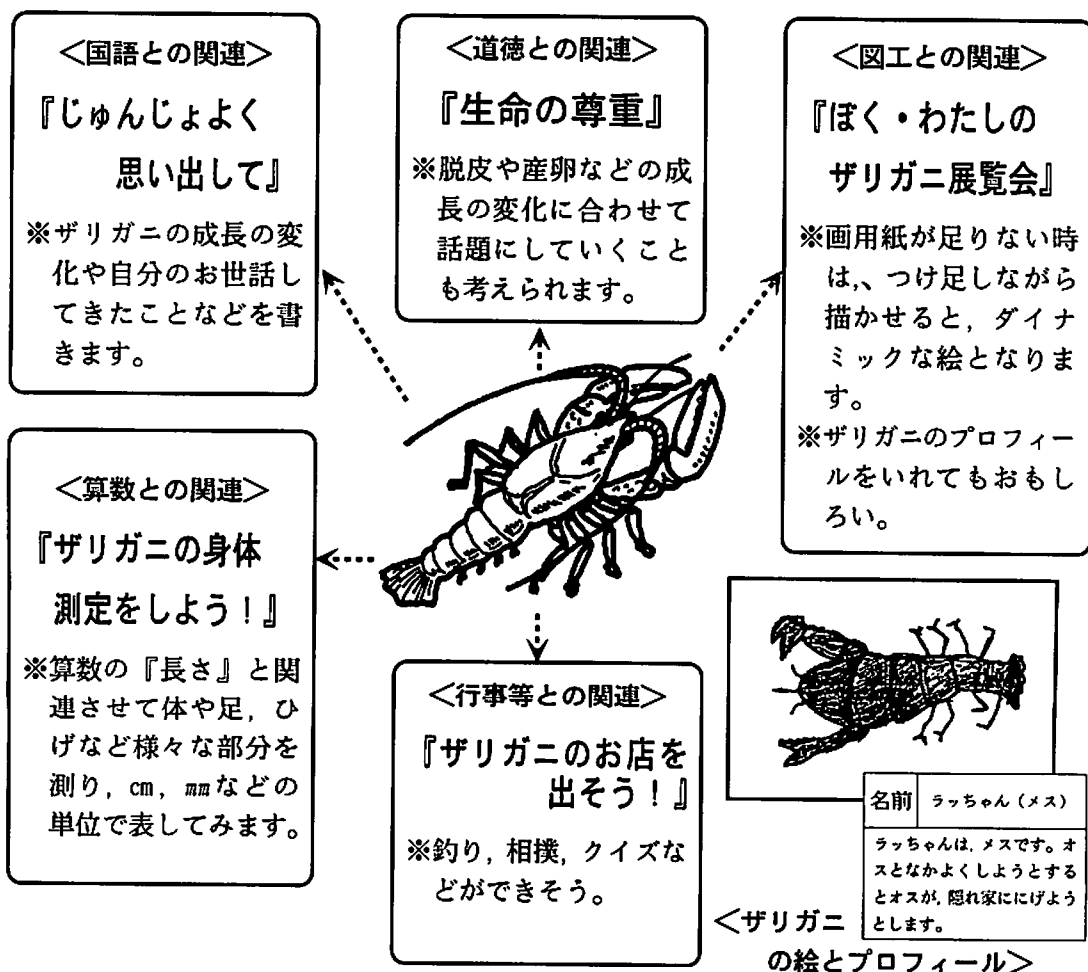 <国語との関連>
『じゅんじょよく
思い出して』
※ザリガニの成長の変
化や自分のお世話し
てきたことなどを書
きます。
<道徳との関連>
『生命の尊重』
※脱皮や産卵などの成
長の変化に合わせて
話題にしていくこと
も考えられます。
<図工との関連>
『ぼく・わたしの
ザリガニ展覧会』
※画用紙が足りない時
は,、つけ足しながら
描かせると,ダイナ
ミックな絵となりま
す。
※ザリガニのプロフィー
ルをいれてもおもし
ろい。
<算数との関連>
『ザリガニの身体
測定をしよう!』
※算数の『長さ』と関
連させて体や足,ひ
げなど様々な部分を
測り,cm,mmなどの
単位で表してみます。
<行事等との関連>
『ザリガニのお店を
出そう!』
※釣り,相撲,クイズな
どができそう。
名前 ラッちゃん(メス)
ラッちゃんは,メスです。オ
スとなかよくしようとする
とオスが,隠れ家ににげよう
とします。
<ザリガニ
の絵とプロフィール>